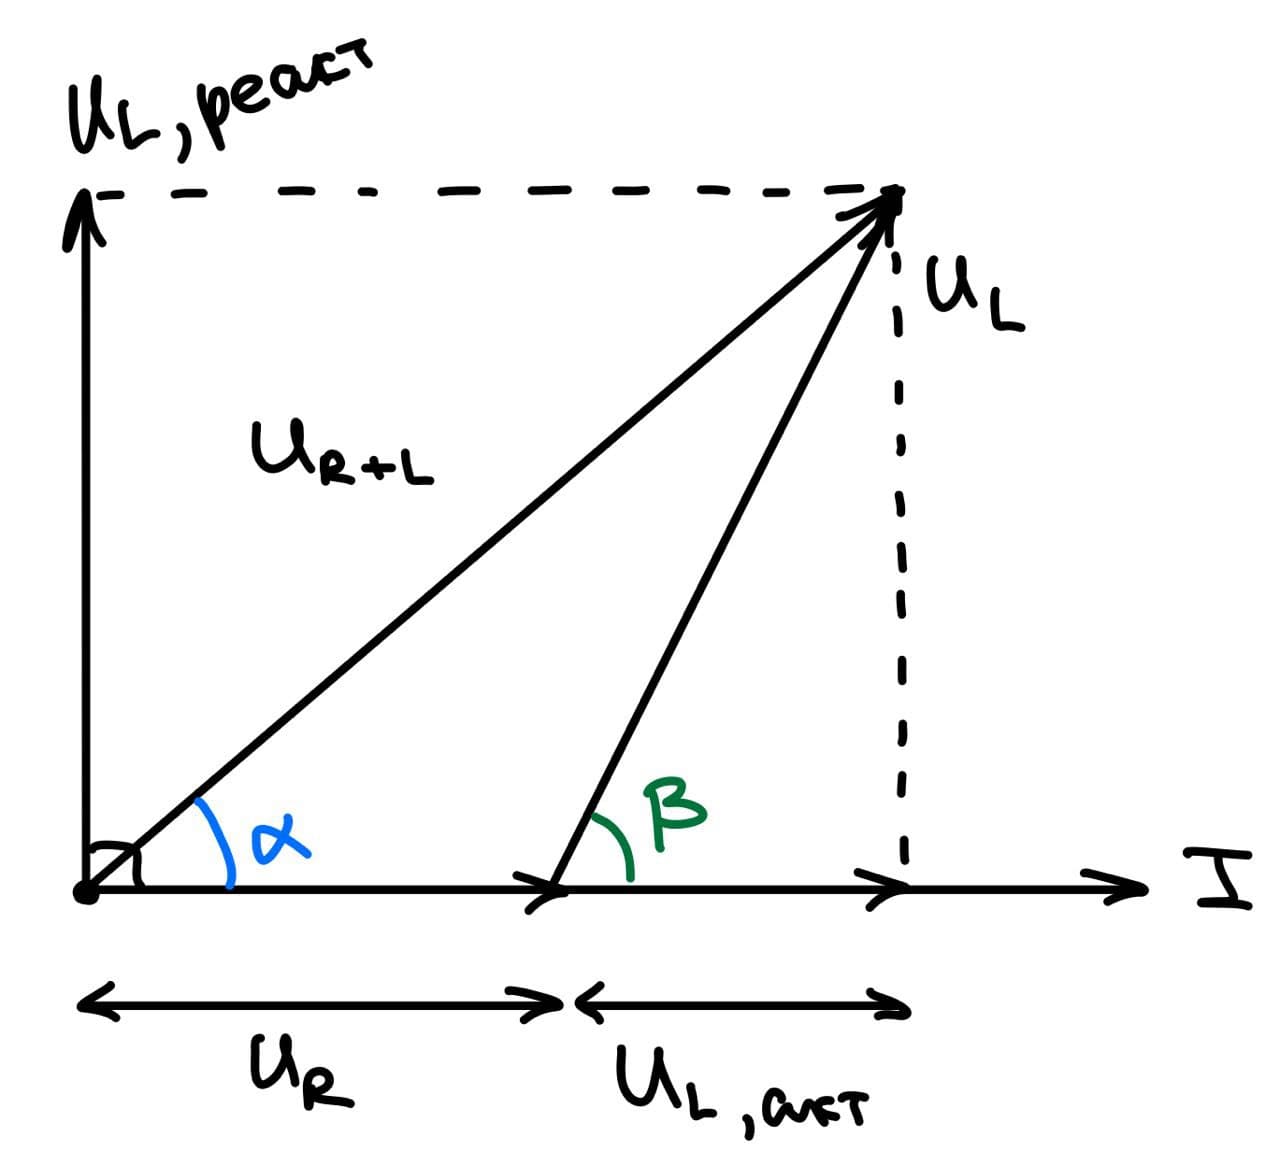 U_L,реакт
U_L
U_R+L
α
β
I
U_R
U_L,акт